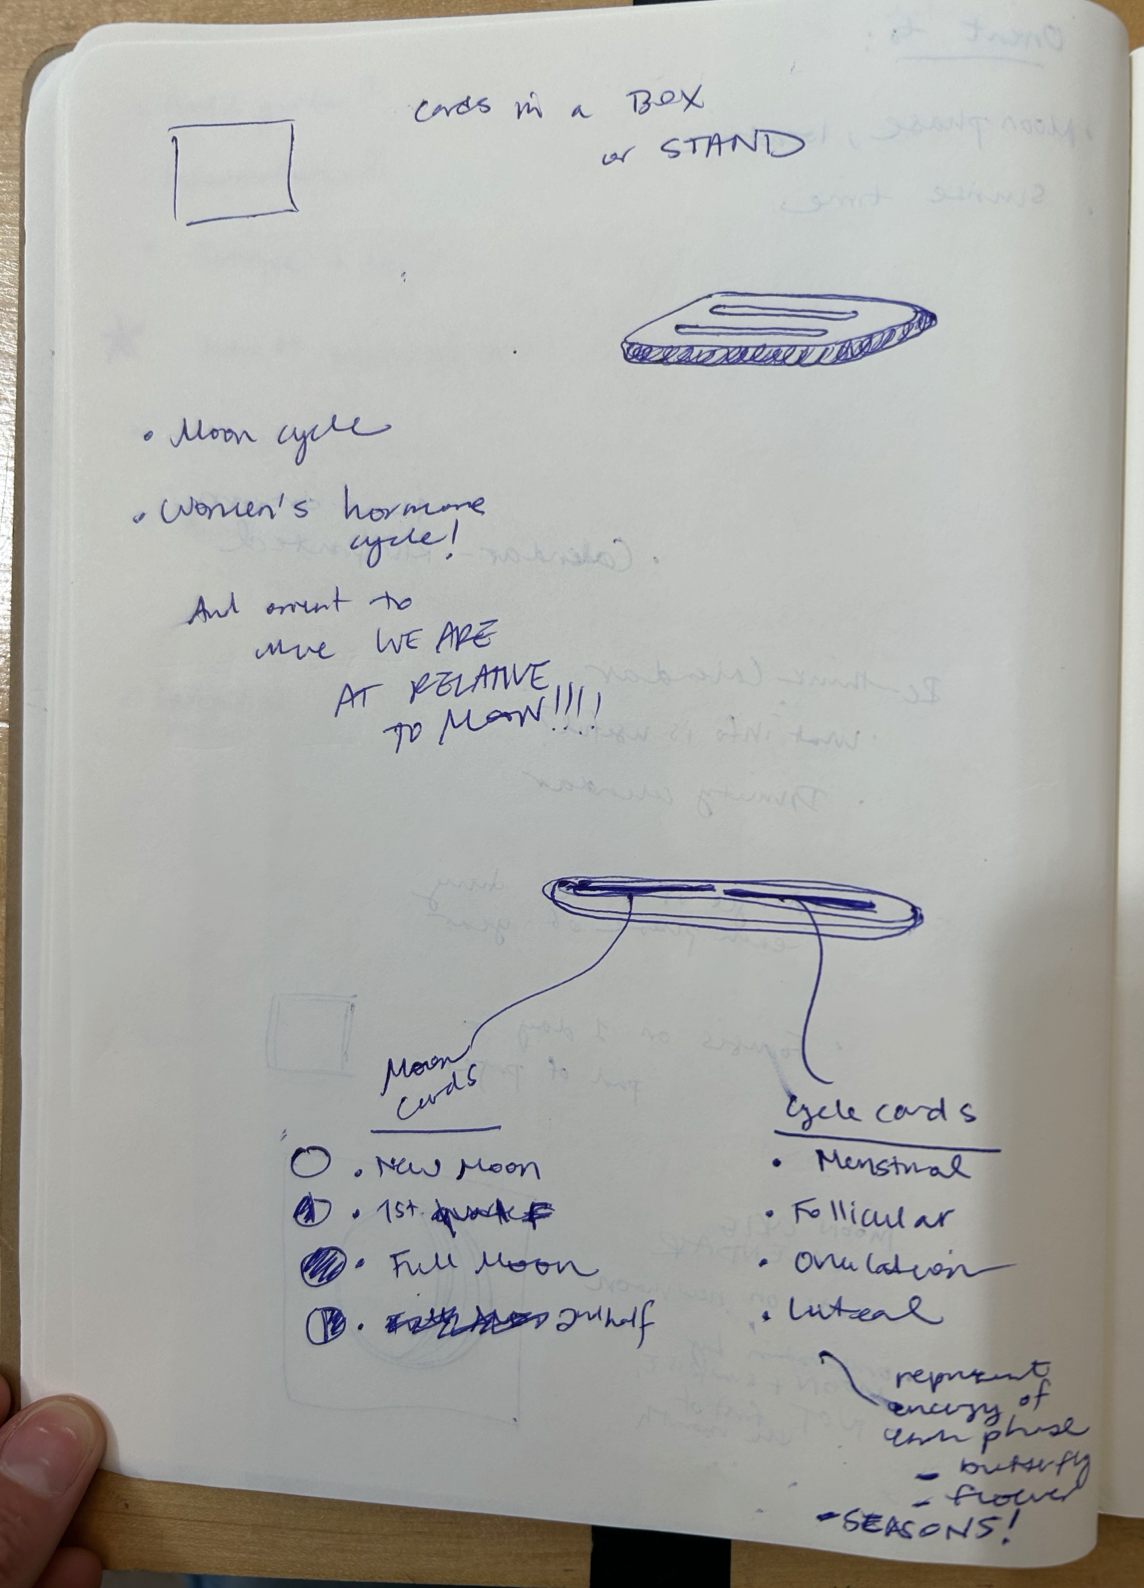 Cards in a BOX
or STAND
• Moon cycle
• Women's hormone
cycle!
And orient to
where WE ARE
AT RELATIVE
TO MOON!!!!
Moon
Cards
• New Moon
• 1st
• Full Moon
• 2nd half
Cycle cards
• Menstrual
• Follicular
• Ovulation
• Luteal
represent
energy of
each phase
- butterfly
- flower
- SEASONS!